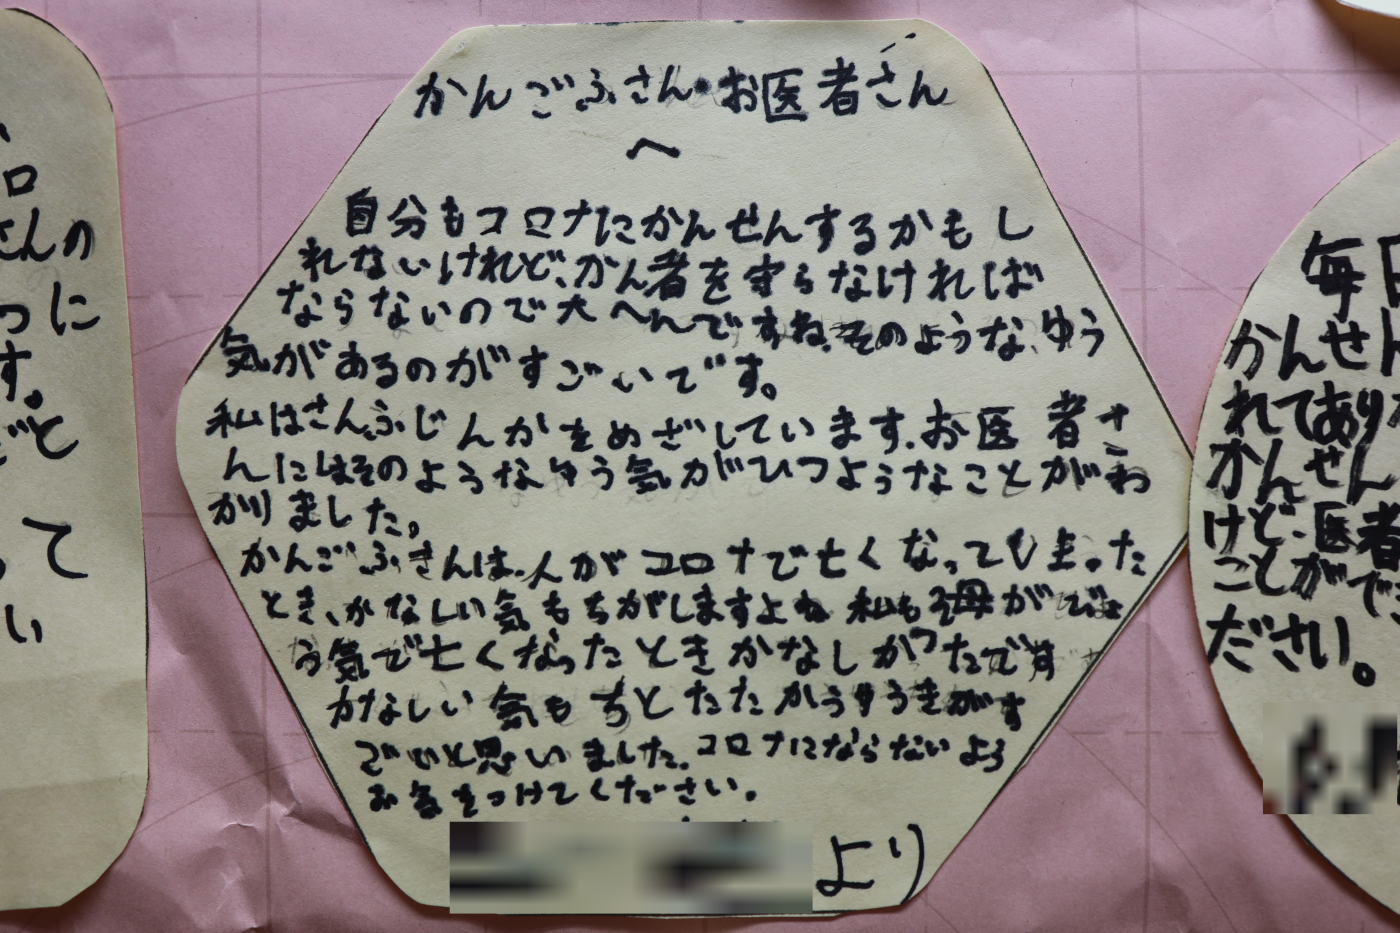 かんごふさん・お医者さん
へ
自分もコロナにかんせんするかもし
れないけれど、かん者を守らなければ
ならないので大へんですね。そのようなゆう
気があるのがすごいです。
私はさんふじんかをめざしています。お医者さ
んにはそのようなゆう気がひつようなことがわ
かりました。
かんごふさんは、人がコロナで亡くなってしまった
とき、かなしい気もちがしますよね。私も祖母がびょ
う気で亡くなったときかなしかったです
かなしい気もちとたたかうゆうきがす
ごいと思いました。コロナにならないよう
お気をつけてください。
より
ロ
さんの
つに
す。
ど と
って
い
毎日
かんせん
れてあり
かんせん
けど、医者
ことがで
ださい。